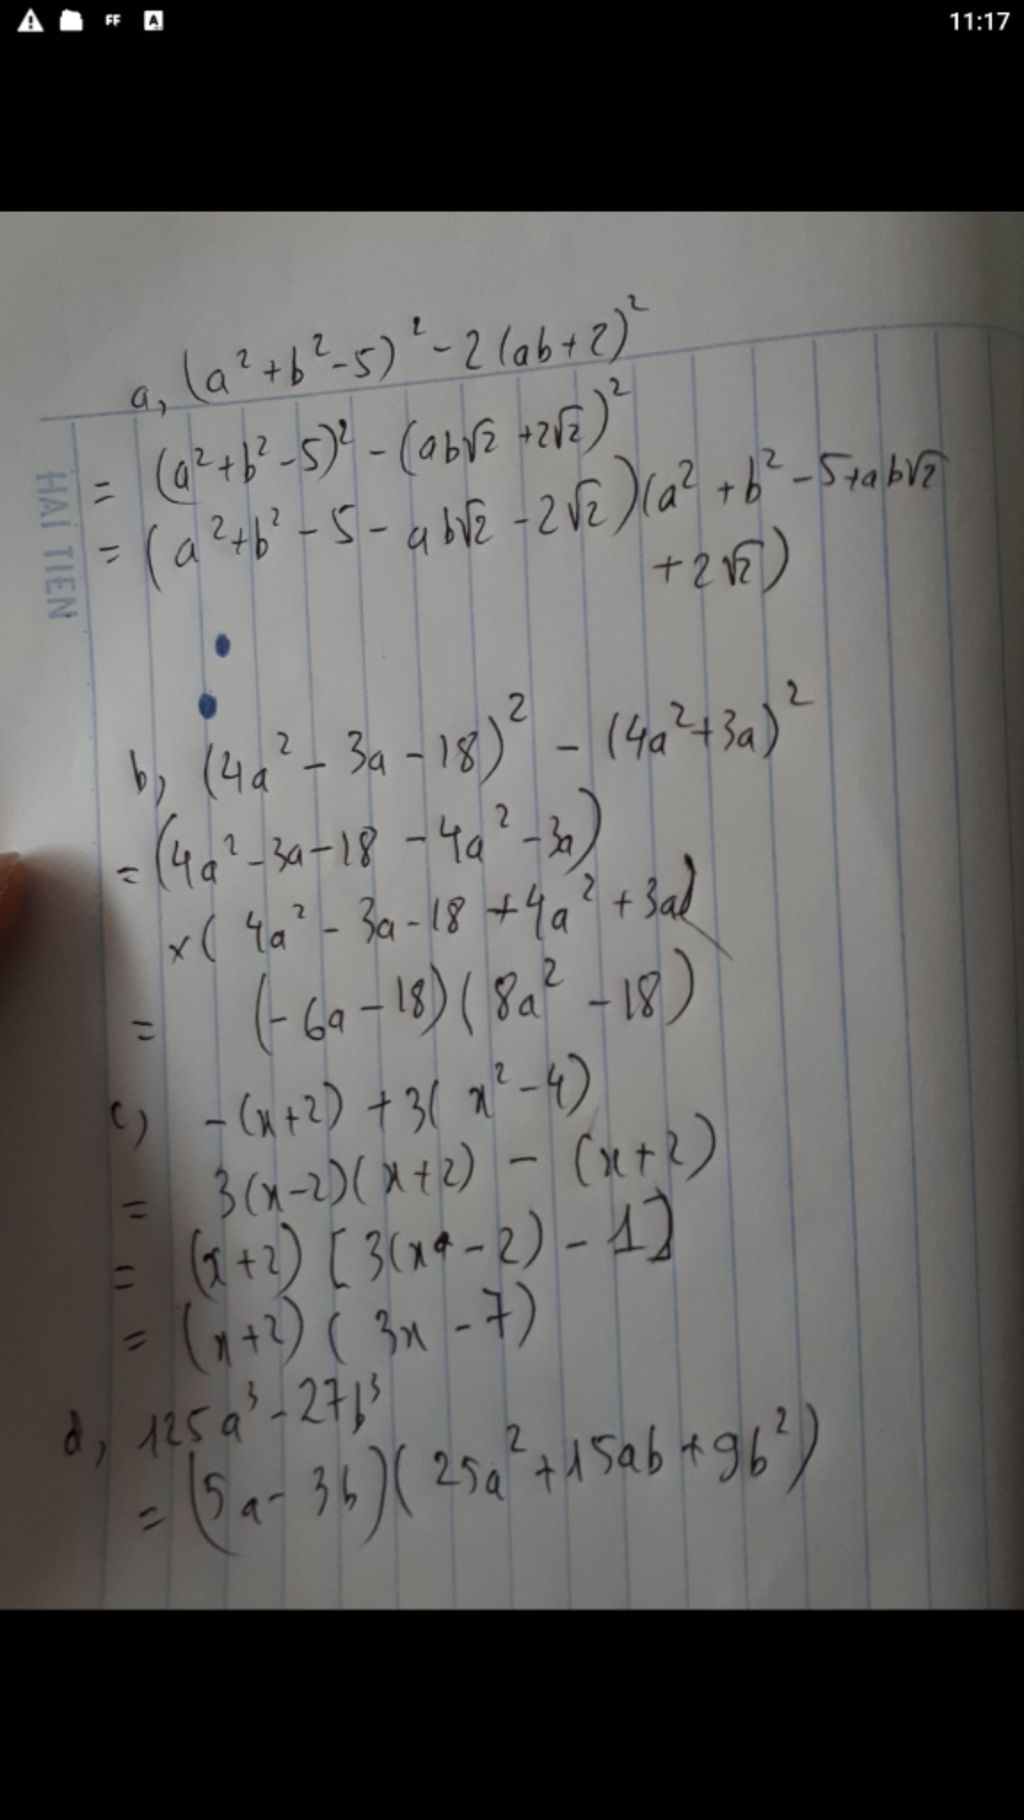 FF A 11:17
HẢI TIẾN
a, (a²+b²-5)² - 2(ab+2)²
= (a²+b²-5)² - (ab√2 +2√2)²
= (a²+b² - 5 - ab√2 - 2√2)(a² + b² - 5+ab√2
+ 2√2)
b, (4a² - 3a - 18)² - (4a²+3a)²
= (4a² - 3a - 18 - 4a² - 3a)
x ( 4a² - 3a - 18 + 4a² + 3a)
= (- 6a - 18) ( 8a² - 18)
c) - (x+2) + 3( x² - 4)
= 3(x-2)(x+2) - (x+2)
= (x+2) [3(x - 2) - 1]
= (x+2) ( 3x - 7)
d, 125a³ - 27b³
= (5a - 3b)( 25a² + 15ab + 9b²)